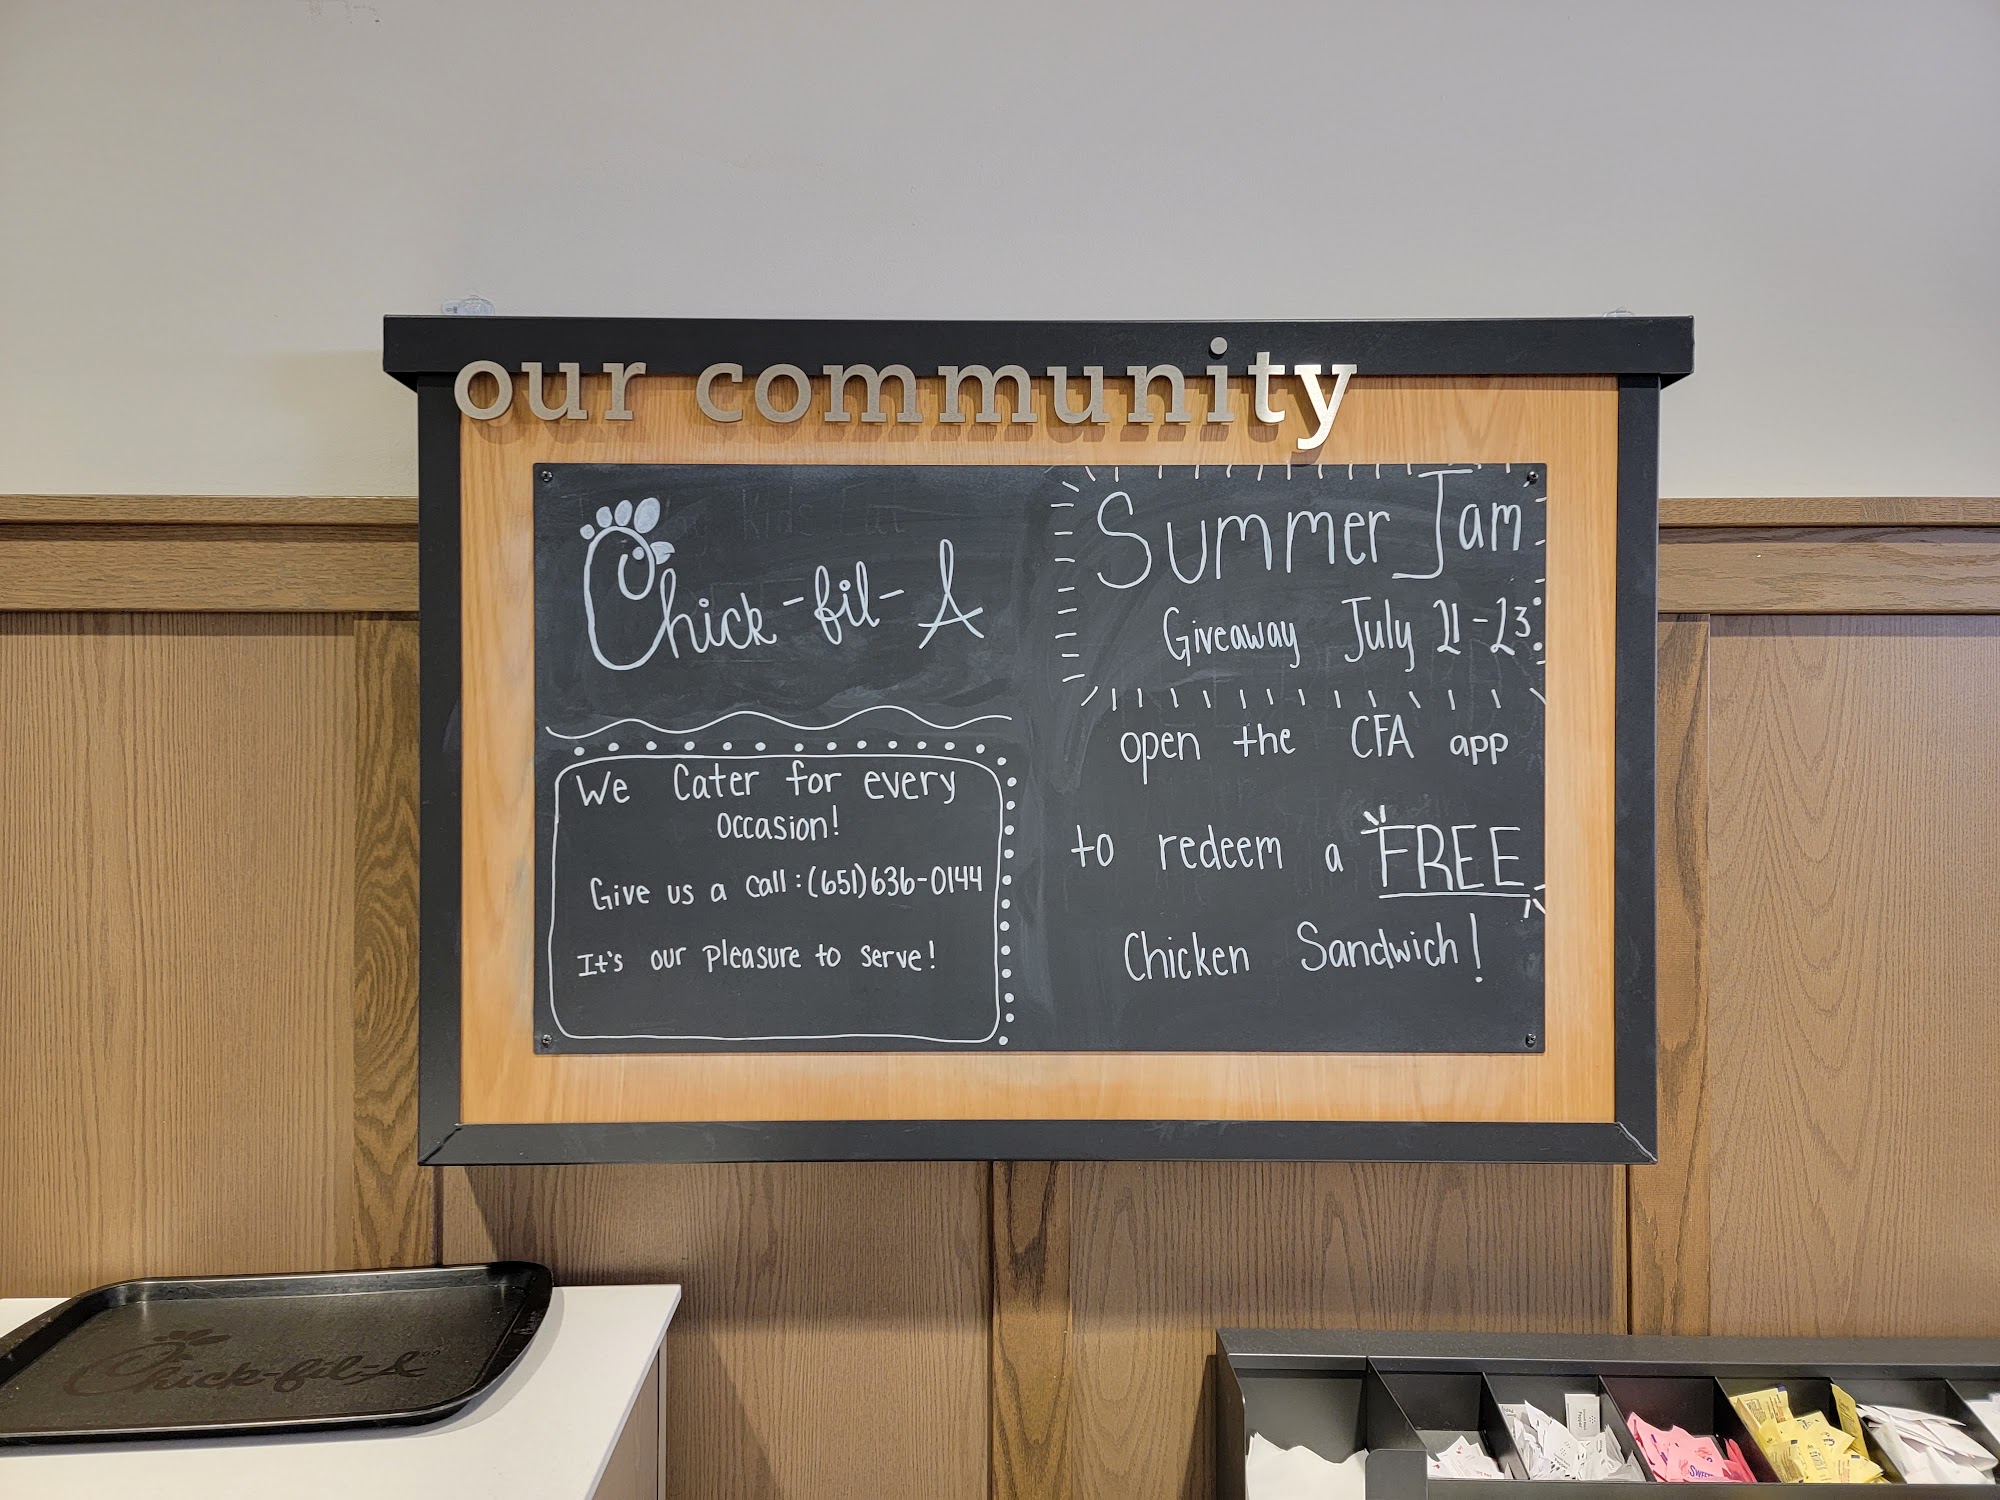 our community
Chick-fil-A
We Cater for every
occasion!
Give us a call: (651)636-0144
It's our pleasure to serve!
Summer Jam
Giveaway July 21-23
open the CFA app
to redeem a FREE
Chicken Sandwich!
Kids Eat
Chick-fil-A